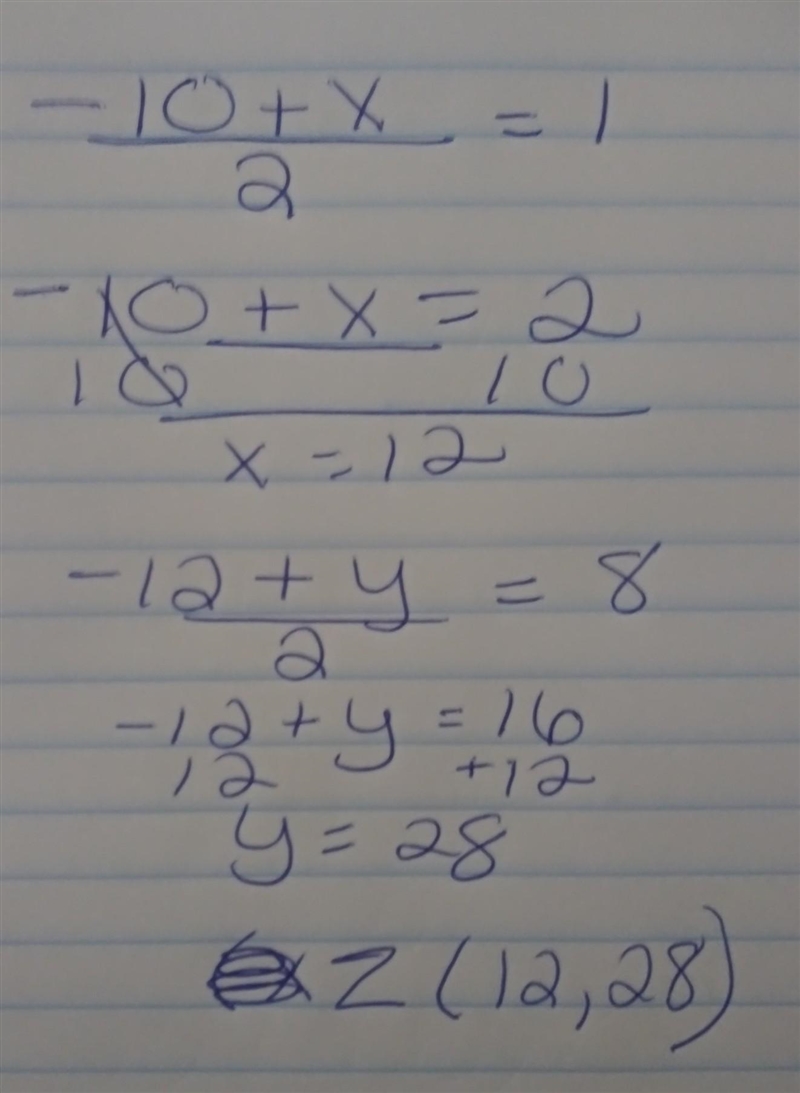 -10 + x = 1
2
-10 + x = 2
10 10
x = 12
-12 + y = 8
2
-12 + y = 16
12 +12
y = 28
Z (12, 28)